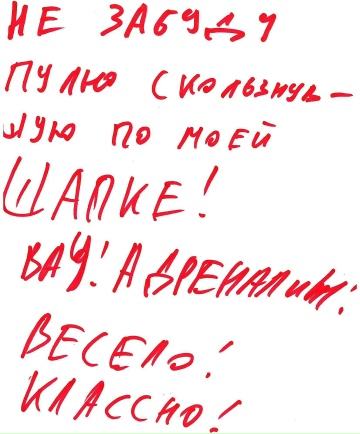 НЕ ЗАБУДУ
ПУЛЮ СКОЛЬЗНУВ-
ШУЮ ПО МОЕЙ
ШАПКЕ!
ВАУ! АДРЕНАЛИН!
ВЕСЕЛО!
КЛАССНО!